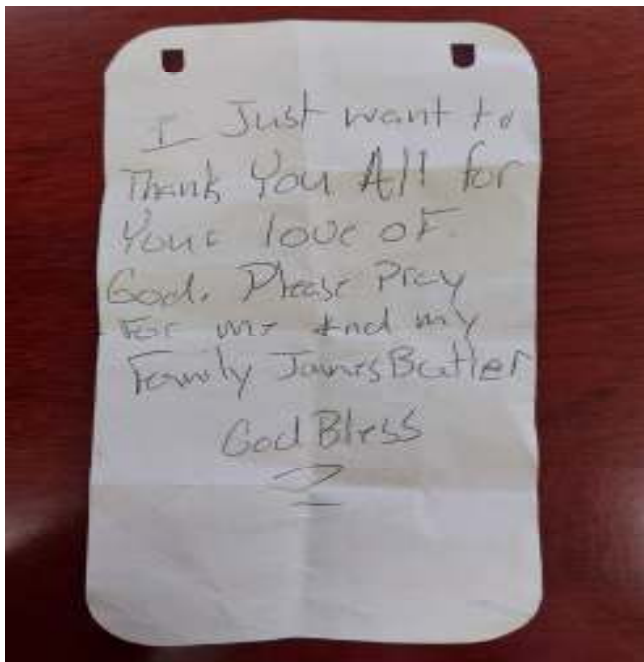 I Just want to
Thank You All for
Your love of
God. Please Pray
For me And my
Family James Butler
God Bless